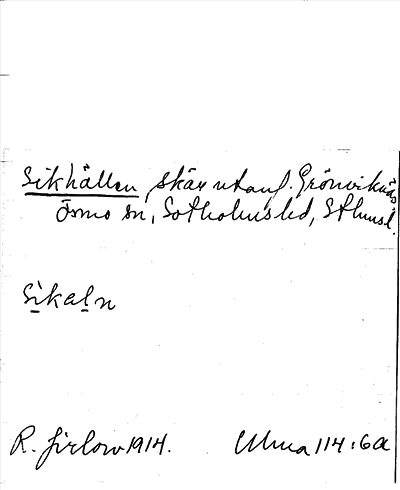 Sikhällen, skär utanf. Grönviksnäs
Ösmo sn, Sotholms hd, Sthmsl.
Sikaln
R. Jirlow 1914. Ulma 114:6a